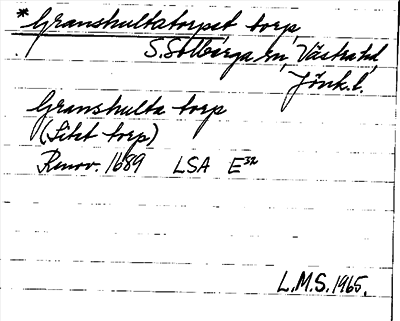 *Granshultatorpet torp,
S. Solberga sn, Västra hd,
Jönk. l.
Granshulta torp
(Litet torp)
Renov. 1689 LSA E³²
L.M.S. 1965.